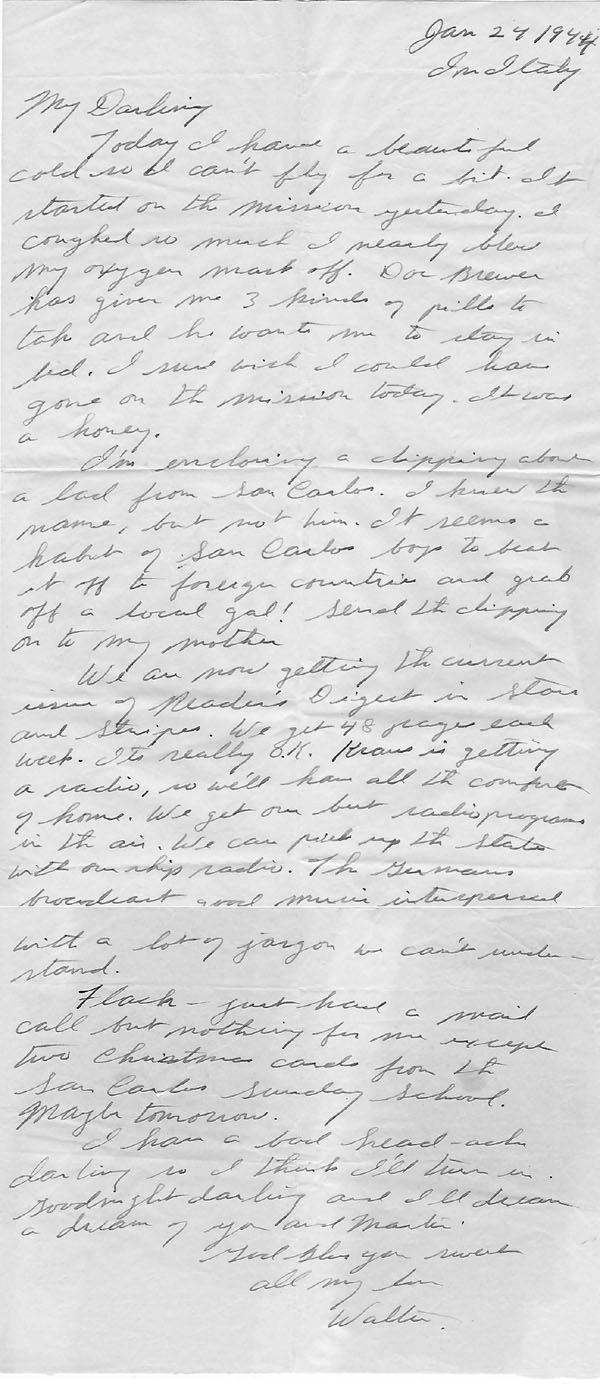 Jan 24 1944
In Italy
My Darling
Today I have a beautiful
cold so I can't fly for a bit. It
started on the mission yesterday. I
coughed so much I nearly blew
my oxygen mask off. Doc Brewer
has given me 3 kinds of pills to
take and he wants me to stay in
bed. I sure wish I could have
gone on the mission today. It was
a honey.
I'm enclosing a clipping about
a lad from San Carlos. I knew the
name, but not him. It seems a
habit of San Carlos boys to beat
it off to foreign countries and grab
off a local gal! Send the clipping
on to my mother
We are now getting the current
issue of Reader's Digest in Stars
and Stripes. We get 48 pages each
week. Its really O.K. Kraus is getting
a radio, so we'll have all the comforts
of home. We get our best radio programs
in the air. We can pick up the States
with our ships radio. The Germans
broadcast good music interspersed
with a lot of jargon we can't under-
stand.
Flash - just had a mail
call but nothing for me except
two Christmas cards from the
San Carlos Sunday School.
Maybe tomorrow.
I have a bad head-ache
darling so I think I'll turn in.
Goodnight darling and I'll dream
a dream of you and Martin.
God bless you sweet
all my love
Walter.